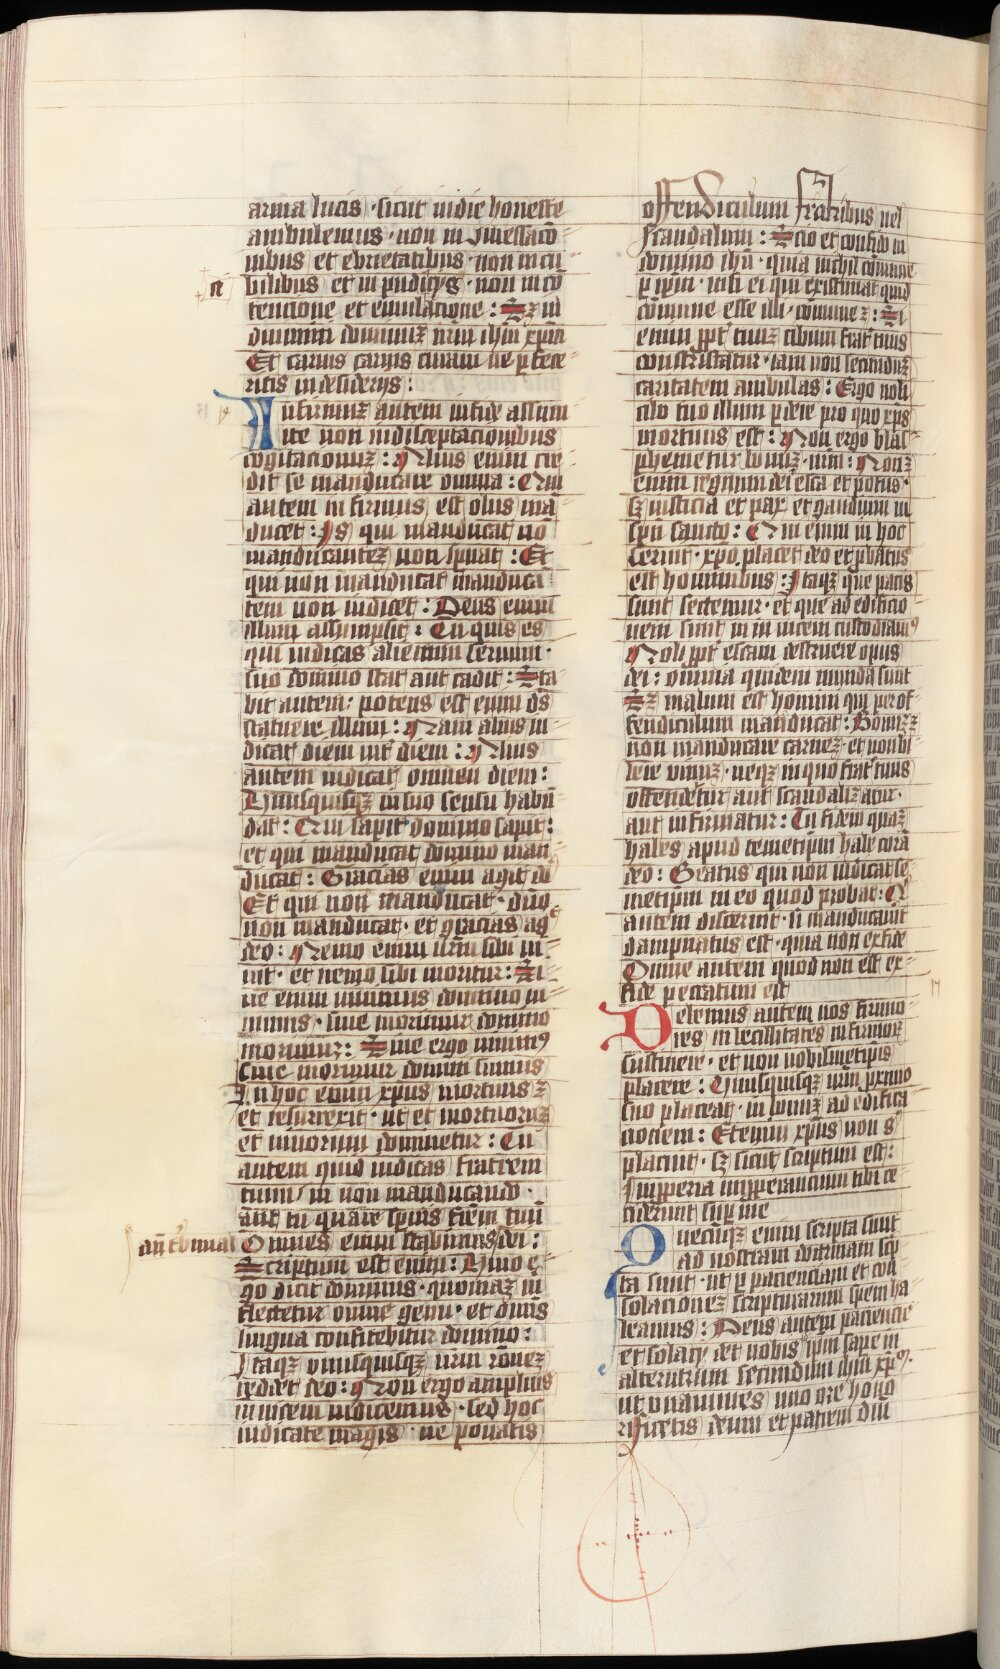 arma lucis · sicut in die honeste
ambulemus · non in comessacio
nibus et ebrietatibus · non in cu
bilibus et inpudicijs · non in co
tencione et emulacione : Sz in
duimini dominuz nr̄m ihm xpm
Et carnis curam ne p̄fece
ritis in desiderijs :
Infirmuz autem in fide assum
ite non in disceptacionibus
cogitacionuz : Alius enim cre
dit se manducare omnia : Qui
autem infirmus est olus ma
ducet : Is qui manducat no
manducantez non spnat : Et
qui non manducat manduca
tem non iudicet : Deus enim
illum assumpsit : Tu quis es
qui iudicas alienum seruum ·
suo domino stat aut cadit : Sta
bit autem · potens est enim ds
statuere illum : Nam alius iu
dicat diem int̄ diem : Alius
autem iudicat omnem diem :
Vnusquisqz in suo sensu habū
dat : Qui sapit domino sapit :
et qui manducat domino man
ducat : Gracias enim agit do
Et qui non manducat · dūo
non manducat · et gracias ag
deo : Nemo enim nrm sibi ui
uit · et nemo sibi moritur : Si
ue enim uiuimus domino ui
uimus · siue morimur domino
morimur : Siue ergo uiuimꝰ
siue morimur domini sumus
In hoc enim xpus mortuus z
et resurrexit · ut et mortuoruz
et uiuorum dominetur : Tu
autem quid iudicas fratrem
tuum / in non manducando ·
aut tu quare spnis frem tuū
Omnes enim stabimus dei :
an̄ tbunal
Scriptum est enim : Viuo e
go dicit dominus · quoniaz m
flectetur omne genu · et omis
lingua confitebitur domino :
Itaqz unusquisqz nrm pro se rōnez
reddet deo : Non ergo amplius
inuicem iudicemus · sed hoc
iudicate magis · ne ponatis
offendiculum fratribus uel
scandalum : Scio et confido in
domino ihu · quia nichil comune
p ipm · nisi ei qui existimat quid
comune esse illi · comune z : Si
enim ppt̄ cibum frat̄ tuus
contristatur · iam non secunduz
caritatem ambulas : Ergo noli
cibo tuo illum pdere pro quo xps
mortuus est : Non ergo blas
phemetur bonuz · nrm : Non z
enim regnum dei esca et potus ·
sz iusticia et pax et gaudium in
spū sancto : Qui enim in hoc
seruit · xpo placet deo et pbatus
est hominibus : Itaqz que pacis
sunt sectemur · et que ad edificio
nem sunt in in uicem custodiamꝰ
Noli ppt̄ escam destruere opus
dei : omnia quidem munda sunt
Sz malum est homini qui per of
fendiculum manducat : Bonuz z
non manducare carnez · et non bi
bere uinuz · neqz in quo frat̄ tuus
offendetur aut scandalizatur ·
aut infirmatur : Tu fidem quaz
habes apud temetipm habe corā
deo : Beatus qui non iudicat se
metipm in eo quod probat : Q
autem discernit · si manducauit
dampnatus est · quia non ex fide
Omne autem quod non est ex
fide peccatum est
Debemus autem nos firmio
res inbecillitates infirmor
sustinere · et non nobismetipis
placere : Vnusquisqz nrm pximo
suo placeat · in bonuz ad edifica
cionem : Etenim xpus non s
placuit · sz sicut scriptum est :
Improperia improperancium tibi ce
ciderunt sup me
Quecuqz enim scripta sunt
ad nostram doctrinam scp
ta sunt · ut p pacienciam et con
solacionez scripturarum spem ha
beamus : Deus autem paciencie
et solacij det uobis ipm sapere in
alterutrum secundum ihm xp̄m ·
ut unanimes uno ore hono
rificetis deum et patrem dni